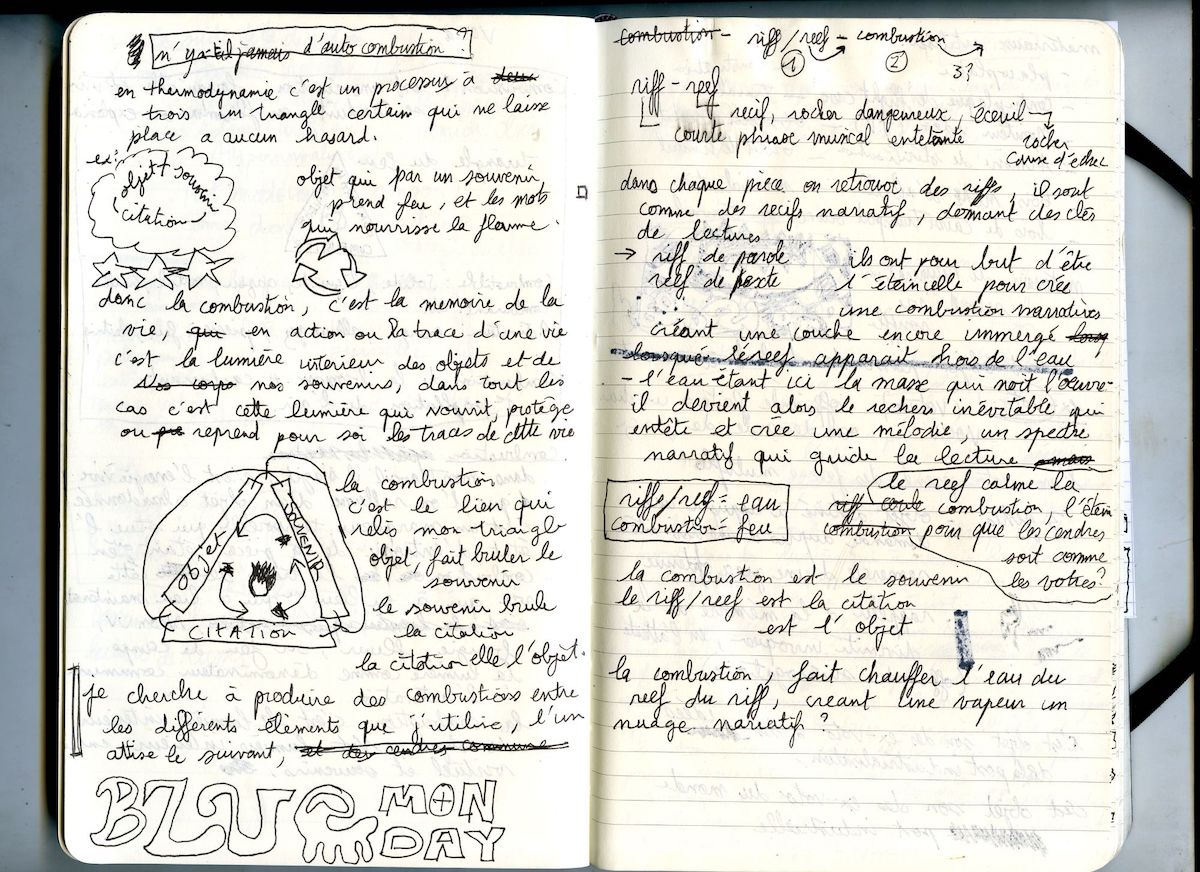 n'y a-t-il jamais d'auto combustion?
en thermodynamie c'est un processus à deux
trois un triangle certain qui ne laisse
place a aucun hasard.
ex:
objet + souvenir
citation
objet qui par un souvenir
prend feu, et les mots
qui nourrisse la flamme.
donc la combustion, c'est la memoire de la
vie, qui en action ou la trace d'une vie
c'est la lumière interieur des objets et de
nos corps nos souvenirs, dans tout les
cas c'est cette lumière qui nourrit, protège
ou reprend pour soi les traces de cette vie
OBJET
SOUVENIR
CITATION
la combustion
c'est le lien qui
relis mon triangle
objet, fait bruler le
souvenir
le souvenir brule
la citation
la citation elle l'objet.
je cherche à produire des combustions entre
les différents éléments que j'utilise, l'un
attise le suivant, et des cendres commune
BLUE MON
DAY
combustion - riff/reef - combustion
1 2 3?
riff - reef
recif, rocher dangeureux, éceuil
courte phrase musical entetante
rocher
cause d'échec
dans chaque pièce on retrouve des riffs, il sont
comme des recifs narratif, donnant des clés
de lectures
→ riff de parole
reef de texte
ils ont pour but d'être
l'éternelle pour crée
une combustion narratives
créant une couche encore immergé
lorsque réreef apparait hors de l'eau
- l'eau étant ici la masse qui noit l'oeuvre -
il devient alors le rechers inévitable qui
entête et crée une mélodie, un spectre
narratif qui guide la lecture mais
riffs/reef = eau
combustion = feu
le reef calme la
riff coule combustion, l'étein
combustion pour que les cendres
soit comme
les votres?
la combustion est le souvenir
le riff/reef est la citation
est l'objet
la combustion fait chauffer l'eau du
reef du riff, creant une vapeur un
nuage narratif?